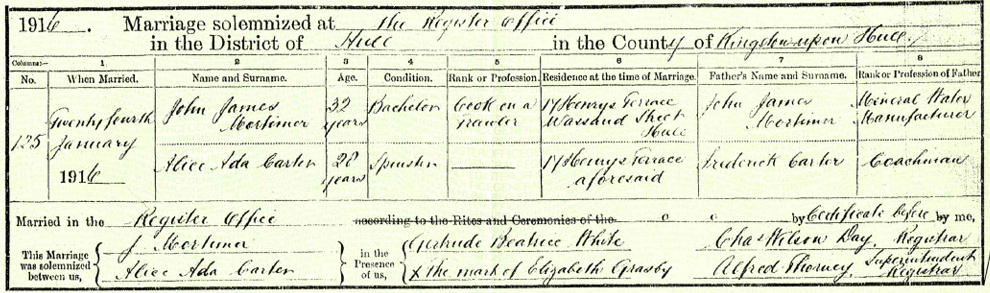 1916. Marriage solemnized at the Register Office
in the District of Hull in the County of Kingston upon Hull
Columns:— 1 2 3 4 5 6 7 8
No. When Married. Name and Surname. Age. Condition. Rank or Profession. Residence at the time of Marriage. Father's Name and Surname. Rank or Profession of Father
125 Twenty fourth January 1916
John James Mortimer 32 years Bachelor Cook on a Trawler 17 Henrys Terrace Wassand Street Hull John James Mortimer Mineral Water Manufacturer
Alice Ada Carter 28 years Spinster 17 Henrys Terrace aforesaid Frederick Carter Coachman
Married in the Register Office according to the Rites and Ceremonies of the by Certificate before by me,
This Marriage was solemnized between us,
J Mortimer
Alice Ada Carter
in the Presence of us,
Gertrude Beatrice White
X the mark of Elizabeth Grasby
Chas Wilson Day. Registrar
Alfred Thorney Superintendent Registrar